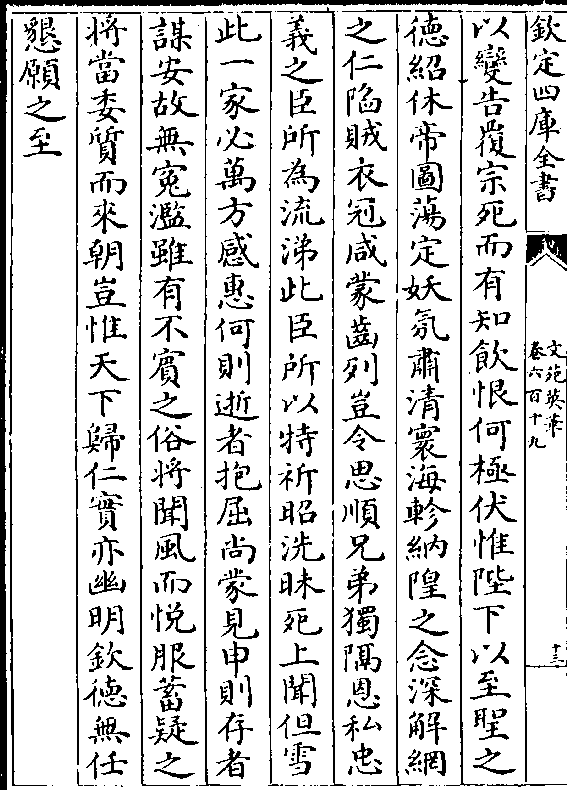 欽定四庫全書
文苑英華
卷六百十九
十三
以變告覆宗死而有知飲恨何極伏惟陛下以至聖之
德紹休帝圖蕩定妖氛肅清寰海軫納隍之念深解網
之仁陷賊衣冠咸蒙齒列豈令思順兄弟獨隔恩私忠
義之臣所為流涕此臣所以特祈昭洗昧死上聞但雪
此一家必萬方感惠何則逝者抱屈尚蒙見申則存者
謀安故無寃濫雖有不賓之俗將聞風而悅服蓄疑之
將當委質而來朝豈惟天下歸仁實亦幽明欽德無任
懇願之至